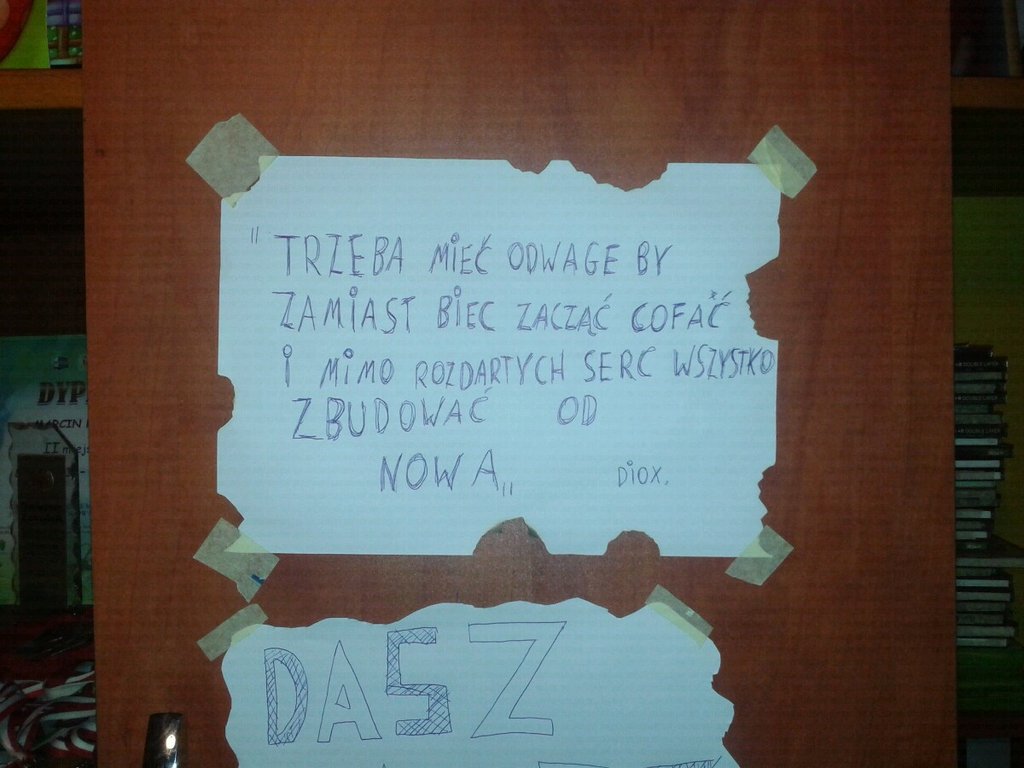 " TRZEBA MIEĆ ODWAGE BY
ZAMIAST BIEC ZACZĄĆ COFAĆ
I MIMO ROZDARTYCH SERC WSZYSTKO
ZBUDOWAĆ OD
NOWA,,
DIOX.
DASZ
DYP
MARCIN
II miejs